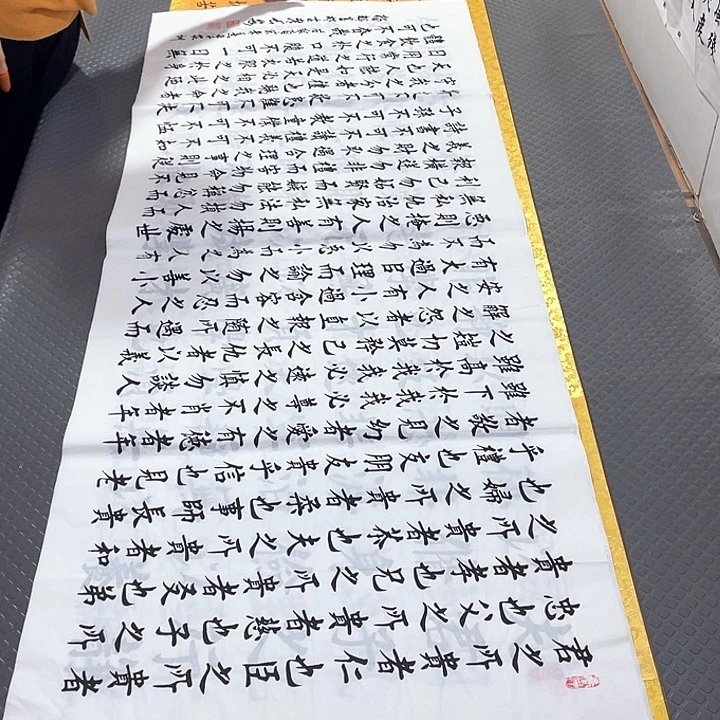 君之所貴者仁也臣之所貴者
忠也父之所貴者慈也子之所
貴者孝也兄之所貴者友也弟
之所貴者恭也夫之所貴者和
也婦之所貴者柔也事師長貴
乎禮也交朋友貴乎信也見老
者敬之見幼者愛之有德者年
雖下於我我必尊之不肖者年
雖高於我我必遠之慎勿談人
之短切莫矜己之長仇者以義
解之怨者以直報之隨所遇而
安之人有小過含容而忍之人
有大過以理而諭之勿以善小
而不為勿以惡小而為之人有
惡則掩之人有善則揚之處世
無私仇治家無私法勿損人而
利己勿妒賢而嫉能勿稱忿而
報橫逆勿非禮而害物命見不
義之財勿取遇合理之事則從
詩書不可不讀禮義不可不知
子孫不可不教童僕不可不恤
斯文不可不敬患難不可不扶
守我之分者禮也聽我之命者
天也人能如是天必相之此乃
日用常行之道若衣服之於身
體飲食之於口腹不可一日無
也可不慎哉